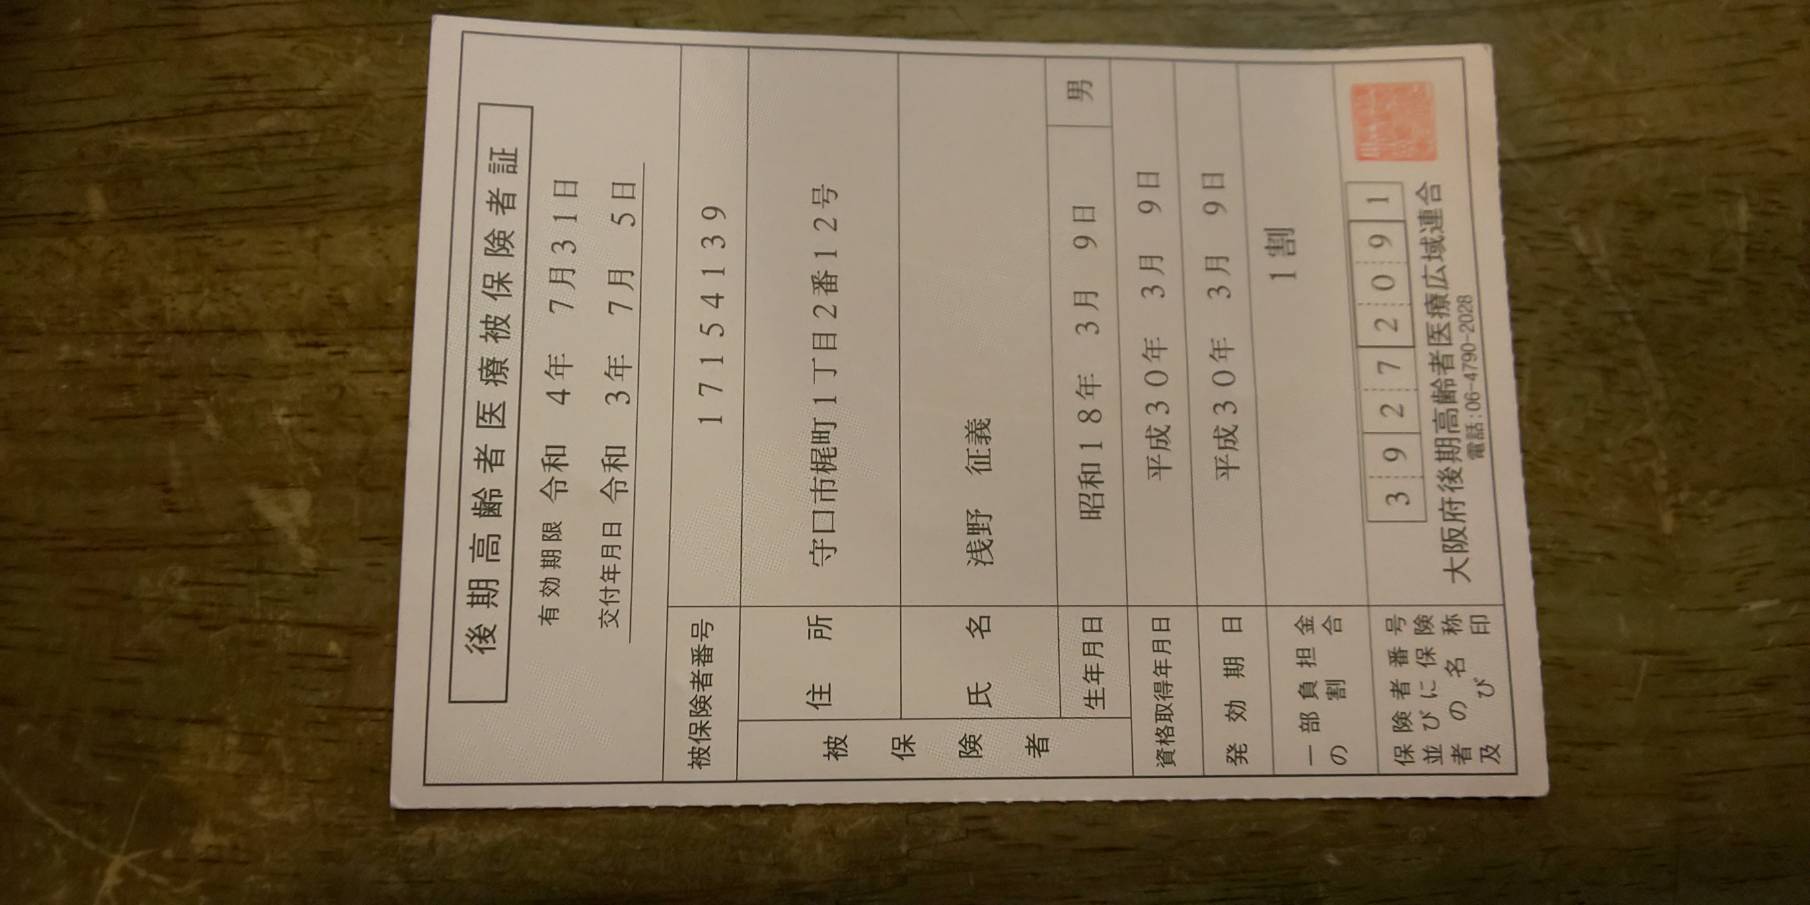 後期高齢者医療被保険者証
有効期限 令和 4年 7月31日
交付年月日 令和 3年 7月 5日
被保険者番号 17154139
被保険者
住所 守口市梶町1丁目2番12号
氏名 浅野 征義
生年月日 昭和18年 3月 9日 男
資格取得年月日 平成30年 3月 9日
発効期日 平成30年 3月 9日
一部負担金の割合 1割
保険者番号並びに保険者の名称及び印
39272091
大阪府後期高齢者医療広域連合
電話:06-4790-2028